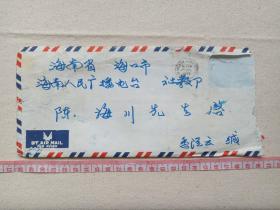 海南省 海口市
海南人民广播电台 社教部
陈 海川 先生 启
BY AIR MAIL
PAR AVION